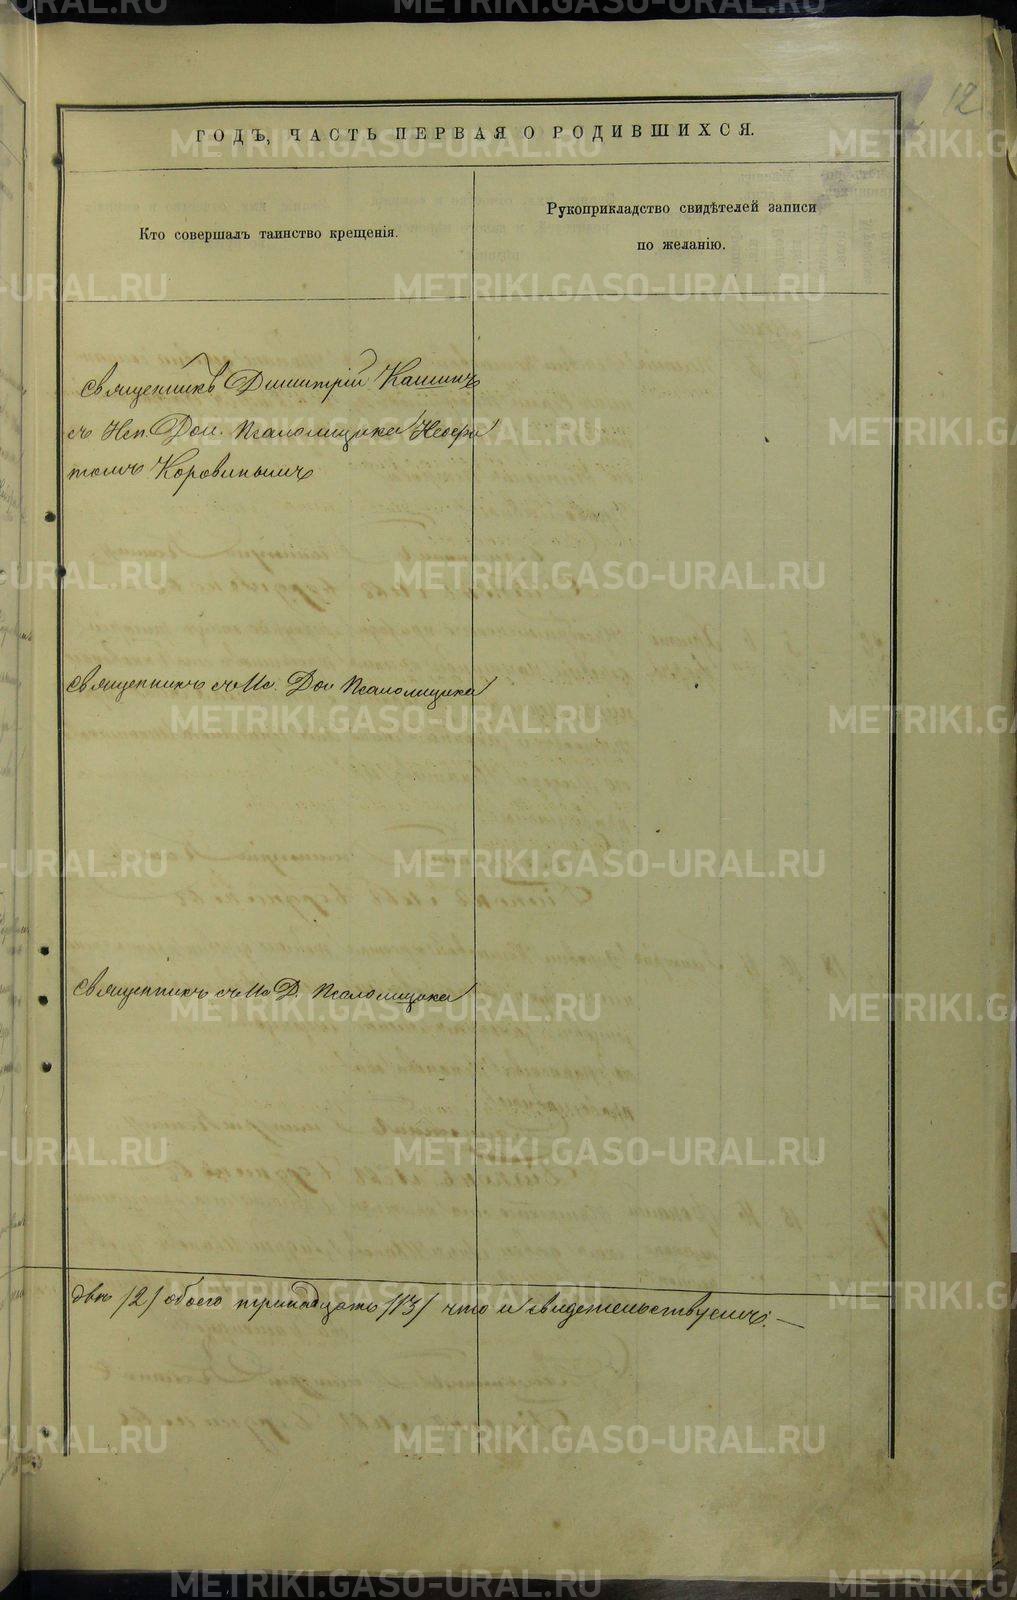 12
ГОДЪ, ЧАСТЬ ПЕРВАЯ О РОДИВШИХСЯ.
Кто совершалъ таинство крещенія.
Рукоприкладство свидѣтелей записи
по желанію.
Священникъ Димитрій Кашинъ
съ Исп. Дол. Псаломщика Неофи
томъ Коровинымъ
Священникъ съ Ис. Дол Псаломщика
Священникъ съ Ис Д. Псаломщика
двѣ /2/ обоего тринадцать /13/ что и свидетельствуемъ. —
METRIKI.GASO-URAL.RU